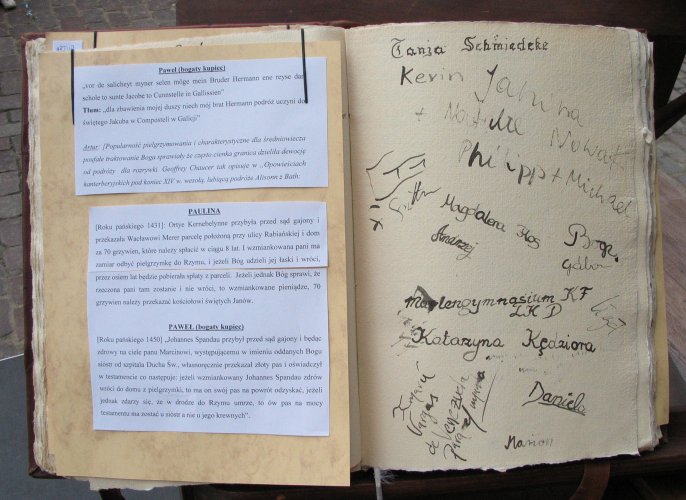 Paweł (bogaty kupiec)
„vor de salicheyt myner selen möge mein Bruder Hermann ene reyse dar
schole to sunte Jacobe to Cunnstelle in Gallissien"
Tłum: „dla zbawienia mojej duszy niech mój brat Hermann podróż uczyni do
świętego Jakuba w Composteli w Galicji"
Artur: [Popularność pielgrzymowania i charakterystyczne dla średniowiecza
poufałe traktowanie Boga sprawiały że często cienka granica dzieliła dewocję
od podróży dla rozrywki. Geoffrey Chaucer tak opisuje w „Opowieściach
kanterberyjskich pod koniec XIV w. wesołą, lubiącą podróże Alisonn z Bath:
PAULINA
[Roku pańskiego 1431] Ortye Kernebelynne przybyła przed sąd gajony i
przekazała Wacławowi Merer parcelę położoną przy ulicy Rabiańskiej i dom
za 70 grzywien, które należy spłacić w ciągu 8 lat. I wzmiankowana pani ma
zamiar odbyć pielgrzymkę do Rzymu, i jeżeli Bóg udzieli jej łaski i wróci,
przez osiem lat będzie pobierała spłaty z parceli. Jeżeli jednak Bóg sprawi, że
rzeczona pani tam zostanie i nie wróci, to wzmiankowane pieniądze, 70
grzywien należy przekazać kościołowi świętych Janów.
PAWEŁ (bogaty kupiec)
[Roku pańskiego 1450] „Johannes Spandau przybył przed sąd gajony i będąc
zdrowy na ciele panu Marcinowi, występującemu w imieniu oddanych Bogu
sióstr od szpitala Ducha Św., własnoręcznie przekazał złoty pas i oświadczył
w testamencie co następuje: jeżeli wzmiankowany Johannes Spandau zdrów
wróci do domu z pielgrzymki, to ma on swój pas na powrót odzyskać, jeżeli
jednak zdarzy się, że w drodze do Rzymu umrze, to ów pas na mocy
testamentu ma zostać u sióstr a nie u jego krewnych".
Tanja Schmiedeke
Kevin Janina
+ Natalia Nowak
Philipp + Michael
Magdalena Kłos
Andrzej
Gábor
KF
LKP
Katarzyna Kędziora
Daniela
Marion